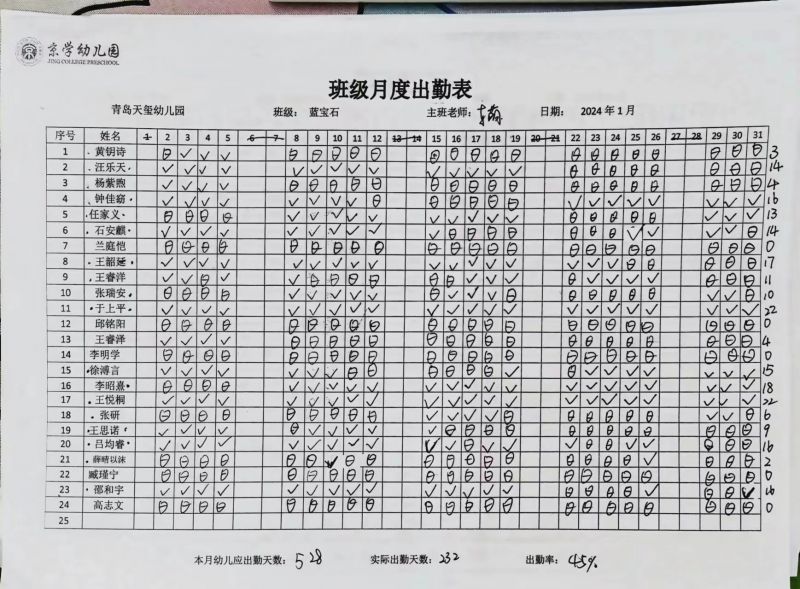 京学幼儿园
JING COLLEGE PRESCHOOL
班级月度出勤表
青岛天玺幼儿园 班级: 蓝宝石 主班老师: 日期: 2024年1月
序号 姓名 1 2 3 4 5 6 7 8 9 10 11 12 13 14 15 16 17 18 19 20 21 22 23 24 25 26 27 28 29 30 31
1 黄钥诗 3
2 汪乐天 14
3 杨紫煦 4
4 钟佳窈 16
5 任家义 13
6 石安麒 14
7 兰庭恺 0
8 王韶延 17
9 王睿洋 11
10 张瑞安 10
11 于上平 22
12 邱铭阳 0
13 王睿泽 4
14 李明学 0
15 徐溥言 15
16 李昭熹 18
17 王悦桐 22
18 张研 6
19 王思诺 9
20 吕均睿 16
21 薛晴以沫 2
22 臧瑾宁 0
23 邵和宇 16
24 高志文 0
25
本月幼儿应出勤天数: 528 实际出勤天数: 232 出勤率: 45%